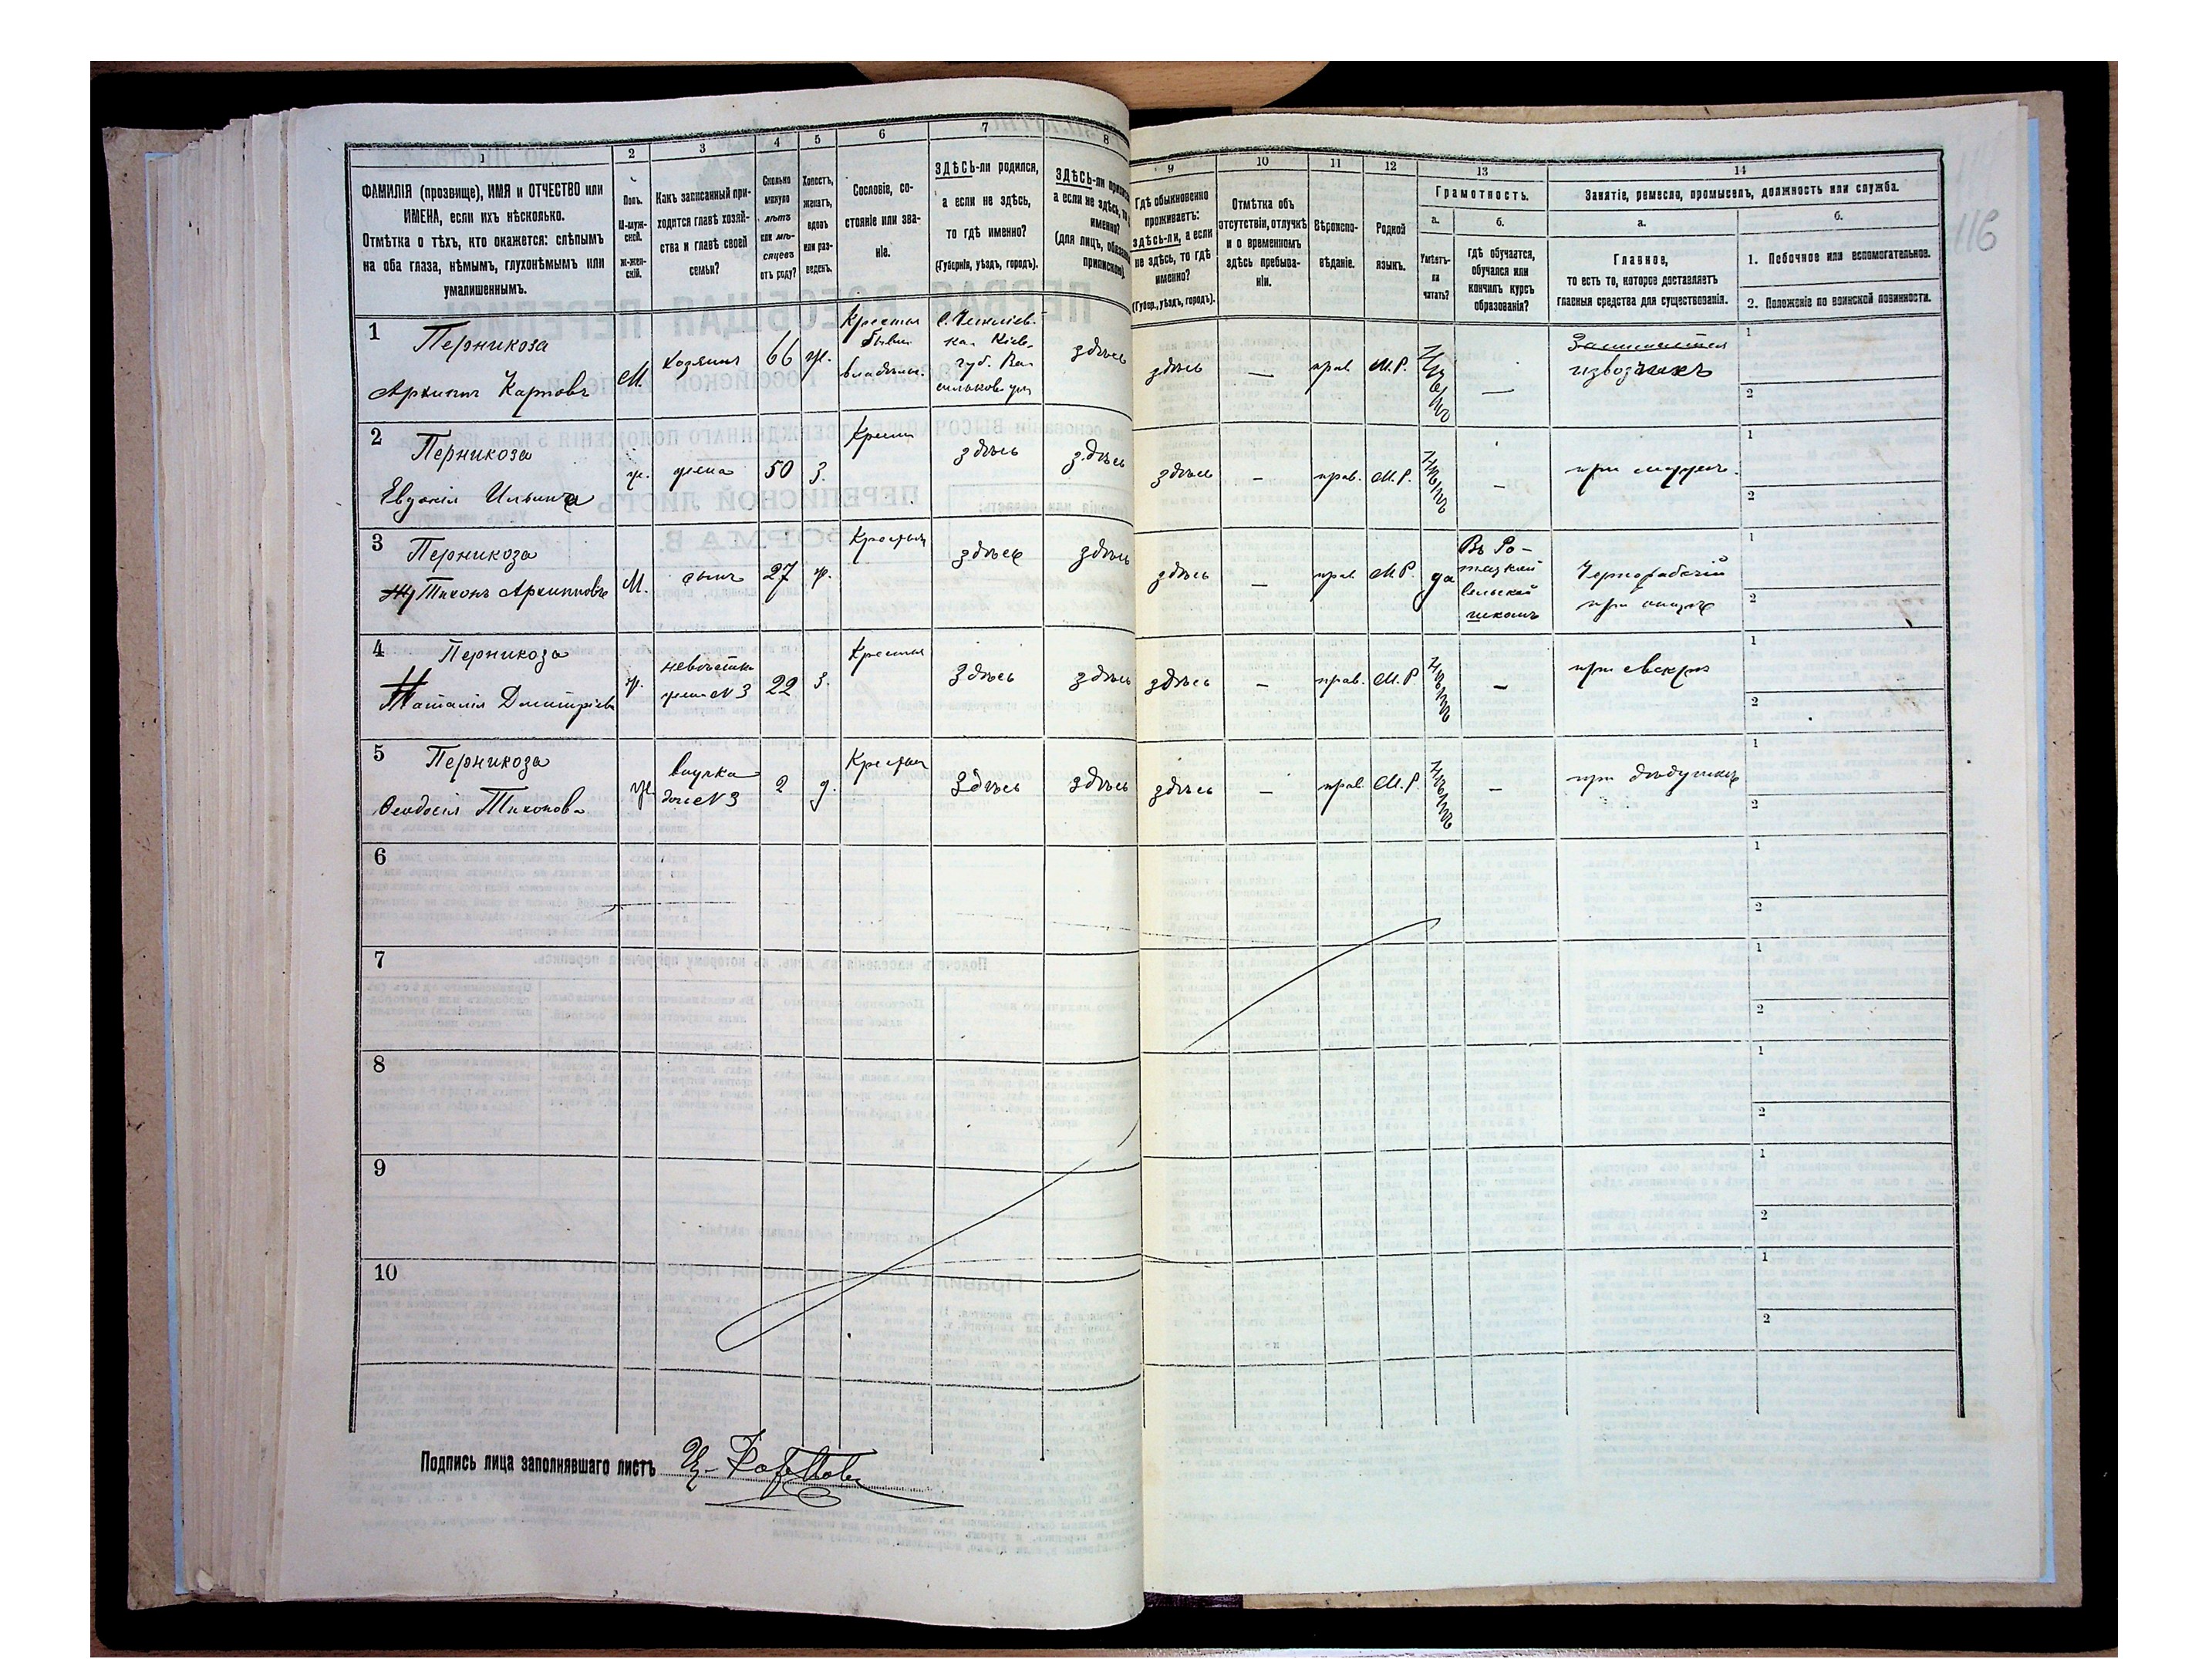 1 2 3 4 5 6 7 8 9 10 11 12 13 14
ФАМИЛІЯ (прозвище), ИМЯ и ОТЧЕСТВО или
ИМЕНА, если ихъ нѣсколько.
Отмѣтка о тѣхъ, кто окажется: слѣпымъ
на оба глаза, нѣмымъ, глухонѣмымъ или
умалишеннымъ.
Полъ.
М-муж-
ской.
Ж-жен-
скій.
Какъ записанный при-
ходится главѣ хозяй-
ства и главѣ своей
семьи?
Сколько
минуло
лѣтъ
или мѣ-
сяцевъ
отъ роду?
Холостъ,
женатъ,
вдовъ
или раз-
веденъ.
Сословіе, со-
стояніе или зва-
ніе.
ЗДѢСЬ-ли родился,
а если не здѣсь,
то гдѣ именно?
(Губернія, уѣздъ, городъ).
ЗДѢСЬ-ли
а если не здѣсь,
именно?
(для лицъ,
Гдѣ обыкновенно
проживаетъ:
здѣсь-ли, а если
не здѣсь, то гдѣ
именно?
(Губер., уѣздъ, городъ).
Отмѣтка объ
отсутствіи, отлучкѣ
и о временномъ
здѣсь пребыва-
ніи.
Вѣроиспо-
вѣданіе.
Родной
языкъ.
Грамотность.
а.
Умѣетъ-
ли
читать?
б.
Гдѣ обучается,
обучался или
кончилъ курсъ
образованія?
Занятіе, ремесло, промыселъ, должность или служба.
а.
Главное,
то есть то, которое доставляетъ
главныя средства для существованія.
б.
1. Побочное или вспомогательное.
2. Положеніе по воинской повинности.
116
1 Перникоза
Архипъ Карповъ
М.
Хозяинъ
66
ж.
Крестья
бывш
владѣльч.
Кіев.
губ. Ва
сильков
здѣсь
здѣсь
—
прав.
М.Р.
нѣтъ
—
извозчикъ
1
2
2 Перникоза
Евдокія Ильина
ж.
жена
50
з.
Крестья
здѣсь
здѣсь
здѣсь
—
прав.
М.Р.
нѣтъ
—
при мужѣ.
1
2
3 Перникоза
Тихонъ Архиповъ
М.
сынъ
27
ж.
Крестья
здѣсь
здѣсь
здѣсь
—
прав.
М.Р.
да
Въ
сельской
школѣ
Чернорабочій
при отцѣ
1
2
4 Перникоза
Наталія Дмитріева
ж.
невѣстка
жена N 3
22
з.
Крестья
Здѣсь
здѣсь
здѣсь
—
прав.
М.Р.
нѣтъ
—
при свекрѣ
1
2
5 Перникоза
Ѳеодосія Тихонова
ж.
внучка
дочь N 3
2
д.
Крестья
Здѣсь
здѣсь
здѣсь
—
прав.
М.Р.
нѣтъ
—
при дѣдушкѣ
1
2
6
1
2
7
1
2
8
1
2
9
1
2
10
1
2
Подпись лица заполнявшаго листъ